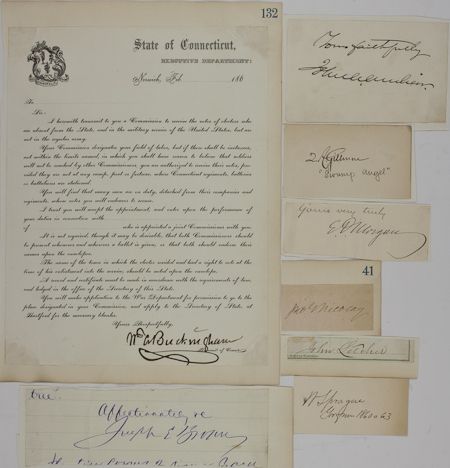 132
State of Connecticut,
EXECUTIVE DEPARTMENT:
Norwich, Feb. 186
To
Sir:
I herewith transmit to you a Commission to receive the votes of electors who
are absent from the State, and in the military service of the United States, but are
not in the regular army.
Your Commission designates your field of labor, but if there shall be instances,
not within the limits named, in which you shall have reason to believe that soldiers
will not be reached by other Commissioners, you are authorized to receive their votes, pro-
vided they are not at any camp, post or fortress, where Connecticut regiments, batteries
or battalions are stationed.
You will find that many men are on duty, detached from their companies and
regiments, whose votes you will endeavor to secure.
I trust you will accept the appointment, and enter upon the performance of
your duties in connection with
of who is appointed a joint Commissioner with you.
It is not required, though it may be desirable, that both Commissioners should
be present whenever and wherever a ballot is given, or that both should endorse their
names upon the envelopes.
The name of the town in which the elector resided and had a right to vote at the
time of his enlistment into the service, should be noted upon the envelope.
A record and certificate must be made in accordance with the requirements of law,
and lodged in the office of the Secretary of this State.
You will make application to the War Department for permission to go to the
place designated in your Commission, and apply to the Secretary of State, at
Hartford for the necessary blanks.
Yours Respectfully,
Wm A Buckingham
Yours faithfully
Q A Gillmore
"Swamp Angel"
Yours very truly
E D Morgan
41
Jno G Nicolay
John Letcher
Wm Sprague
Governor 1860 to 63
true.
Affectionately &c
Joseph E Brown